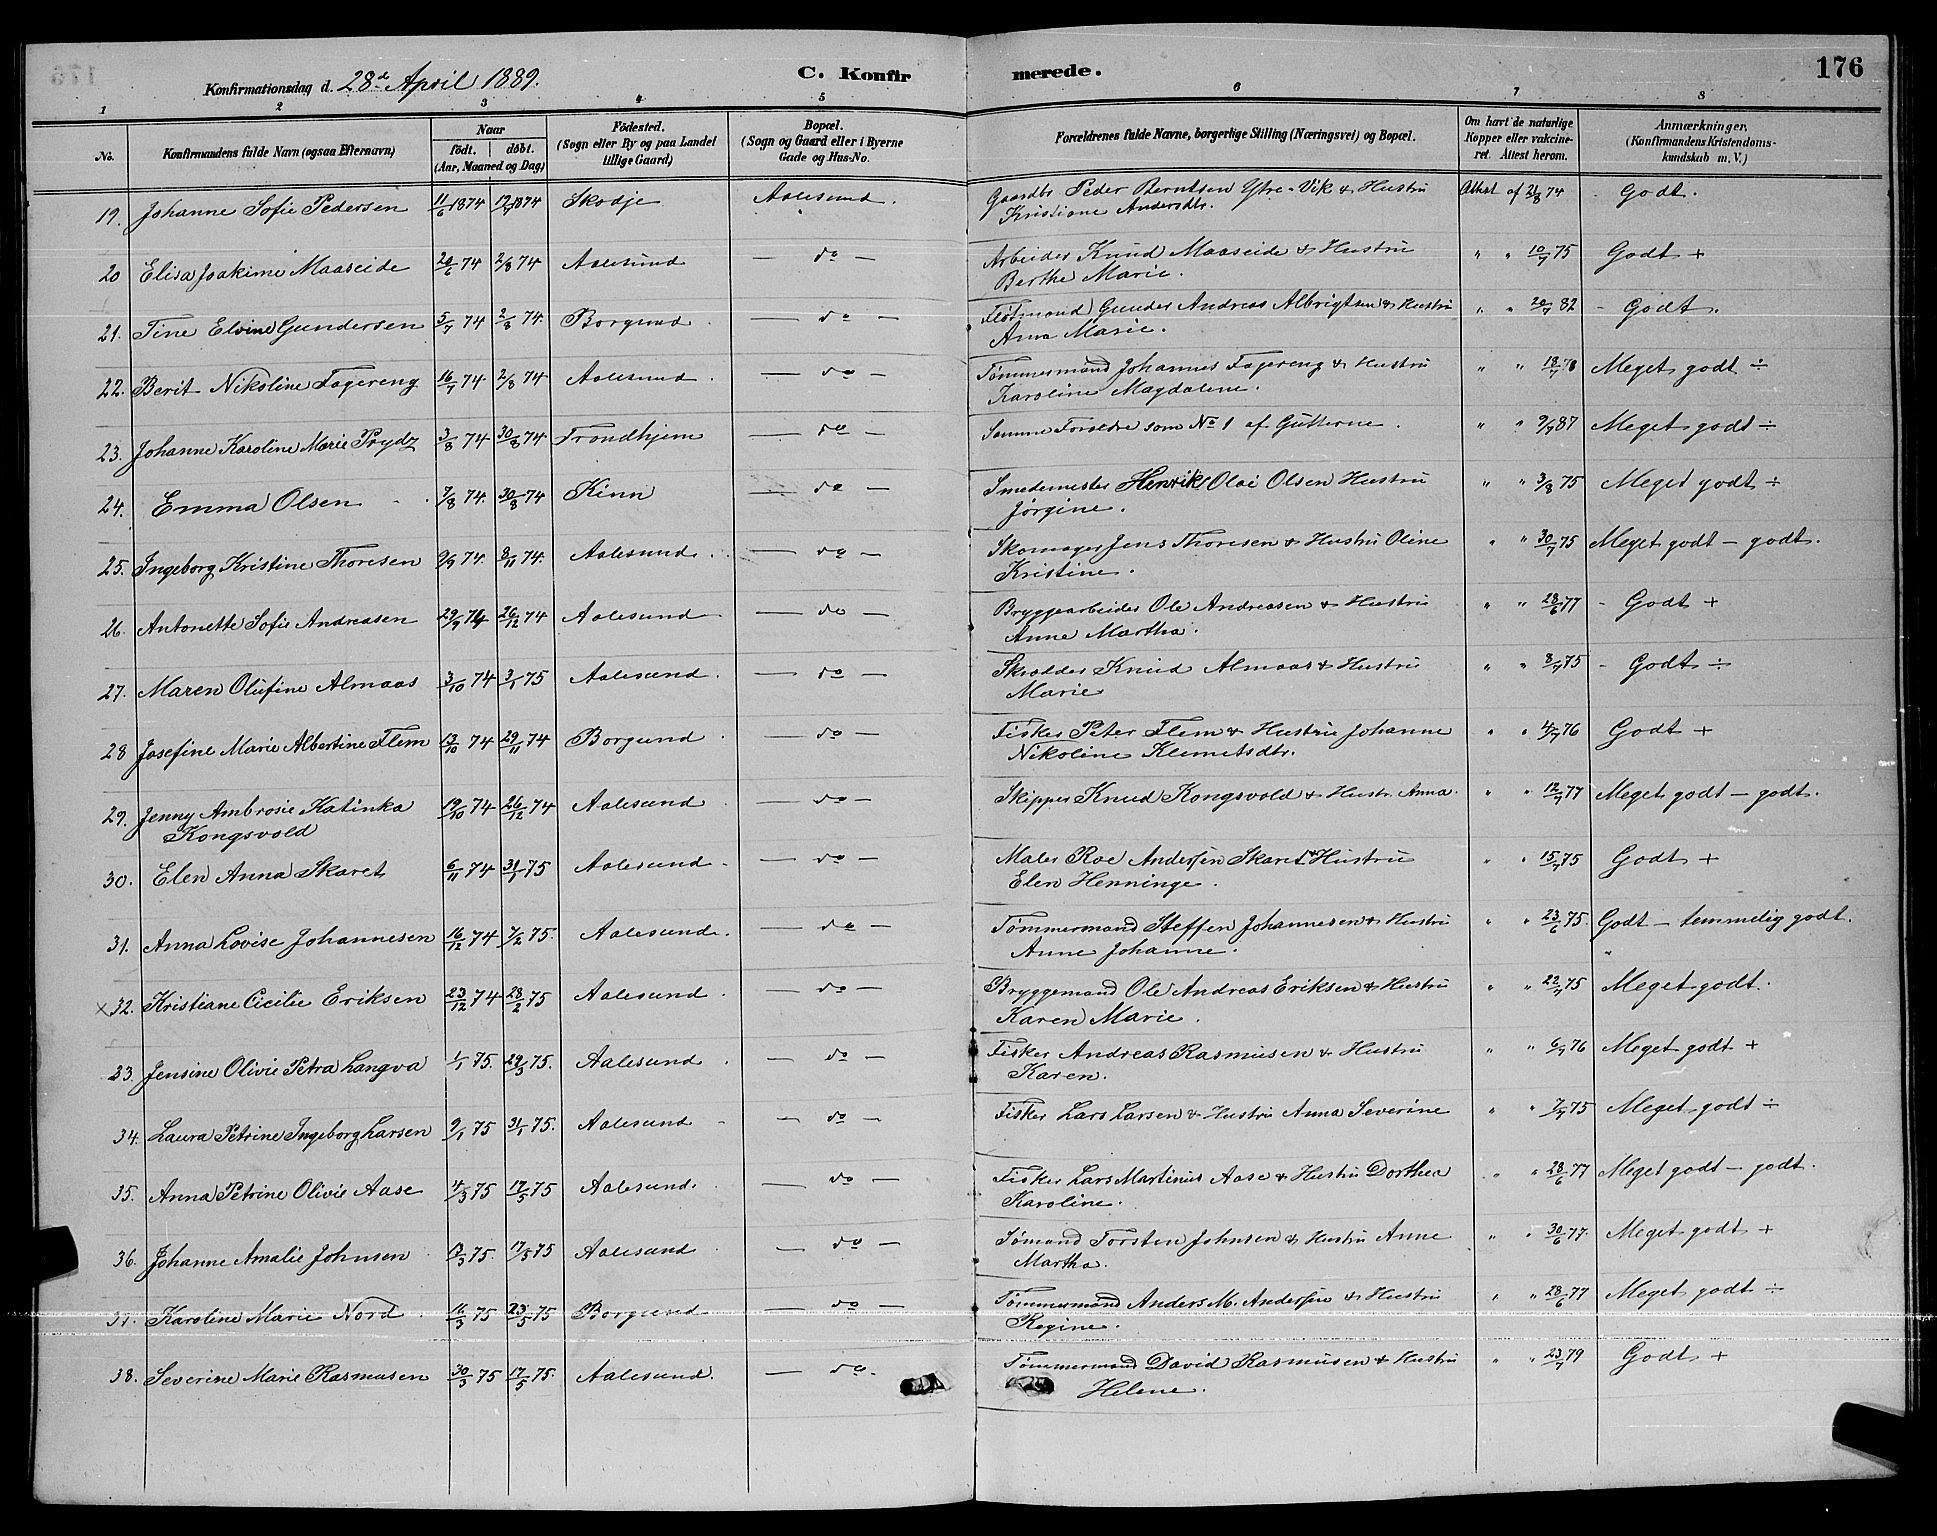 Konfirmationsdag d. 28de April 1889.
C. Konfirmerede.
176
1 2 3 4 5 6 7 8
No. Konfirmandens fulde Navn (ogsaa Efternavn) Naar födt. döbt. (Aar, Maaned og Dag) Födested. (Sogn eller By og paa Landet tillige Gaard) Bopæl. (Sogn og Gaard eller i Byerne Gade og Hus-No. Forældrenes fulde Navne, borgerlige Stilling (Næringsvei) og Bopæl. Om havt de naturlige Kopper eller vakcineret. Attest herom. Anmærkninger. (Konfirmandens Kristendomskundskab m. V.)
19. Johanne Sofie Pedersen 11/6 1874 12/7 1874 Skodje Aalesund. Gaardbr Peder Berntsen Ytre-Vik & Hustru Attest af 21/8 74 - Godt.
Kristiane Andersdtr.
20 Elisa Joakime Maaseide 20/6 74 2/8 74 Aalesund — do — Arbeider Knud Maaseide & Hustru " " 10/7 75 Godt +
Berthe Marie.
21. Tine Elvine Gundersen 5/7 74 2/8 74. Borgund. — do — Flötmand Gunder Andreas Albrigtsen & Hustru " " 20/7 82 - Godt.
Anna Marie.
22. Berit Nikoline Fagereng 16/7 74. 2/8 74 Aalesund. — do — Tømmermand Johannes Fagereng & Hustru " " 18/7 78 Meget godt ÷
Karoline Magdalene.
23. Johanne Karoline Marie Prydz 3/8 74 30/8 74 Trondhjem — do — Samme Forældre som No 1 af Gutterne. " " 9/7 87 Meget godt ÷
24. Emma Olsen 7/8 74. 30/8 74 Kinn — do — Smedemester Henrik Olai Olsen Hustru " " 3/8 75 Meget godt ÷
Jørgine.
25. Ingeborg Kristine Thoresen 9/9 74. 8/11 74. Aalesund. — do — Skomager Jens Thoresen & Hustru Oline " " 30/7 75 Meget godt — godt.
Kristine.
26. Antonette Sofie Andreasen 29/9 74 26/12 74 Aalesund — do — Bryggearbeider Ole Andreasen & Hustru " " 28/6 77 - Godt +
Anne Martha.
27. Maren Olufine Almaas 3/10 74 3/1 75 Aalesund. — do — Skrædder Knud Almaas & Hustru " " 8/7 75 - Godt ÷
Marie
28 Josefine Marie Albertine Flem 13/10 74 29/11 74 Borgund. — do — Fisker Peter Flem & Hustru Johanne " " 4/7 76 Godt +
Nikoline Klemetsdtr.
29. Jenny Ambrosie Katinka 19/10 74 26/12 74 Aalesund — do — Skipper Knud Kongsvold & Hustr. Anna. " " 12/7 77 Meget godt — godt.
Kongsvold
30. Elen Anna Skaret 6/11 74 31/1 75 Aalesund. — do — Maler Roe Andersen Skaret & Hustru " " 15/7 75 Godt +
Elen Henninge.
31. Anna Lovise Johannesen 16/12 74 7/2 75. Aalesund. — do — Tømmermand Steffen Johannesen & Hustru " " 23/6 75. Godt — temmelig godt.
Anne Johanne.
x 32. Kristiane Cicilie Eriksen 23/12 74 28/2 75 Aalesund. — do — Bryggemand Ole Andreas Eriksen & Hustru " " 22/7 75 Meget godt.
Karen Marie.
33. Jensine Olivie Petra Langva 1/1 75. 29/3 75. Aalesund. — do — Fisker Andreas Rasmusen & Hustru " " 6/7 76 Meget godt +
Karen.
34. Laura Petrine Ingeborg Larsen 9/1 75 31/1 75. Aalesund — do — Fisker Lars Larsen & Hustru Anna Severine " " 7/7 75 Meget godt ÷
35. Anna Petrine Olivie Aase 4/3 75 17/5 75 Aalesund. — do — Fisker Lars Martinus Aase & Hustru Dorthea " " 28/6 77 Meget godt — godt.
Karoline.
36. Johanne Amalie Johnsen 12/3 75. 17/5 75 Aalesund — do — Sømand Torsten Johnsen & Hustru Anne " " 30/6 77. Meget godt +
Martha.
37. Karoline Marie Nord. 16/3 75 23/5 75 Borgund — do — Tømmermand Anders M. Andersen & Hustru " " 28/6 77 Meget godt ÷
Regine.
38. Severine Marie Rasmusen 30/3 75 17/5 75. Aalesund. — do. Tømmermand David Rasmusen & Hustru " " 23/7 79 Godt +
Helene.